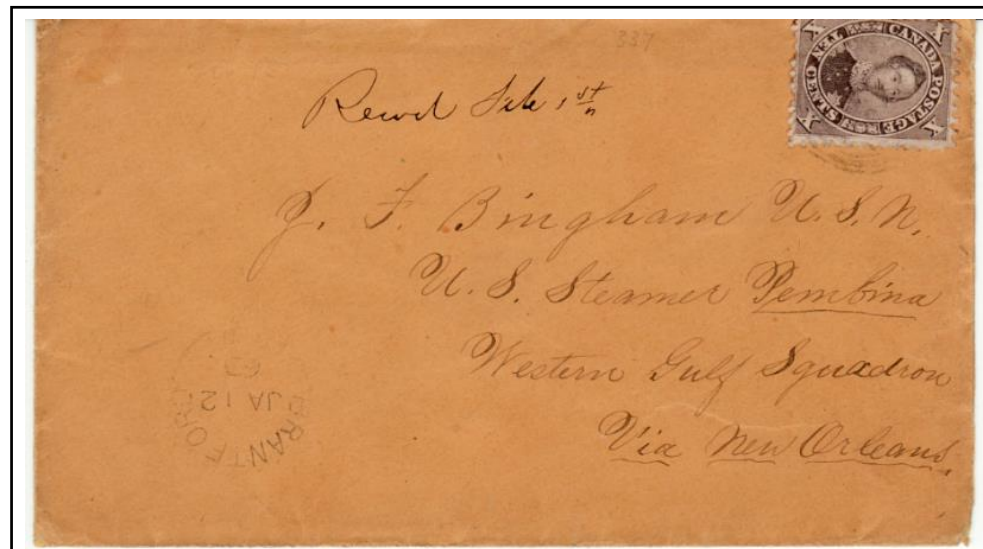 337
CANADA POSTAGE
TEN CENTS
X X X X
J. F. Bingham U. S. N.
U. S. Steamer Pembina
Western Gulf Squadron
Via New Orleans.
BRANTFORD
JA 12